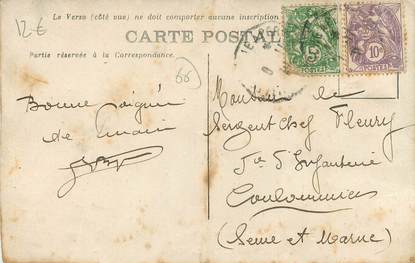 12€
Le Verso (côté vue) ne doit comporter aucune inscription
CARTE POSTAL
Partie réservée à la Correspondance.
66
5c
POSTES
10c
POSTES
Bonne
de
Monsieur le
Sergent Chef Fleury
d'Infanterie
Coulommiers
(Seine et Marne)